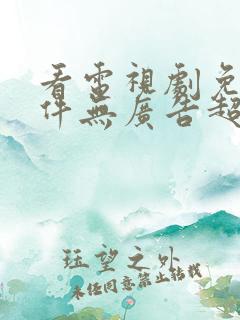 看電視劇免
件無廣告超
珏望之外
未任同意禁止轉載